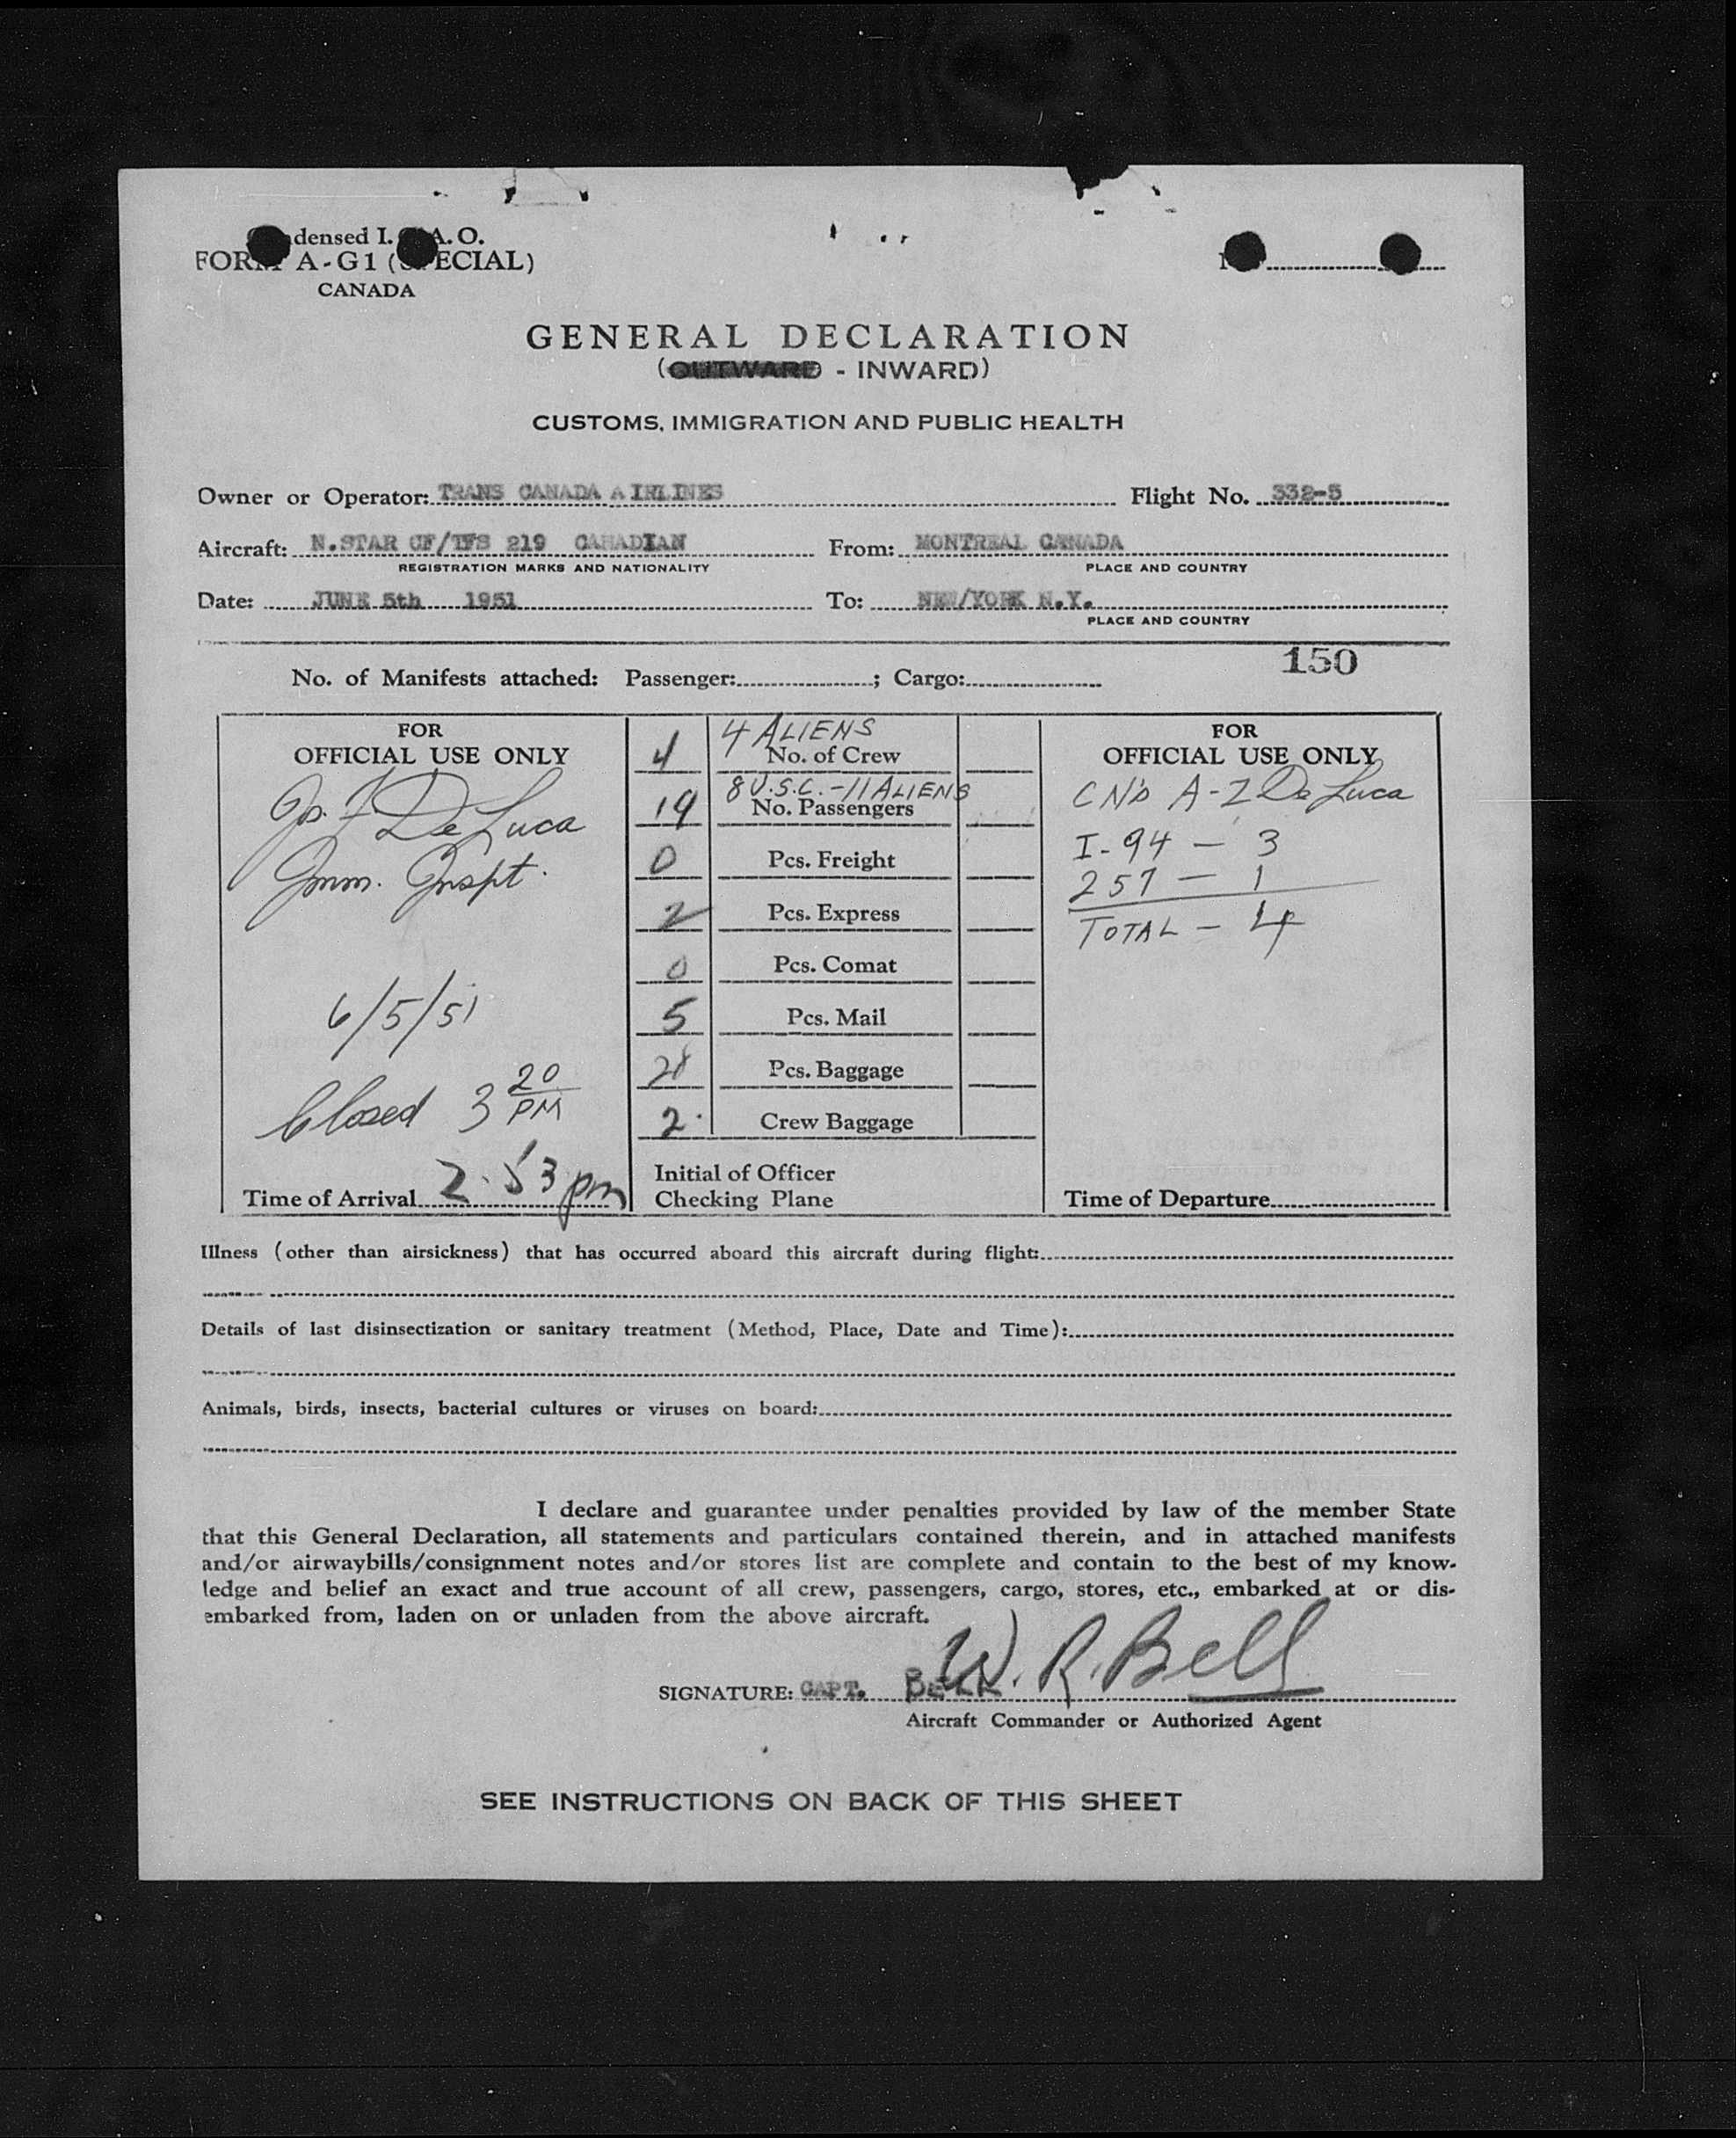 Condensed I.C.A.O.
FORM A-G1 (SPECIAL)
CANADA
GENERAL DECLARATION
(OUTWARD - INWARD)
CUSTOMS, IMMIGRATION AND PUBLIC HEALTH
Owner or Operator: TRANS CANADA AIRLINES Flight No. 332-5
Aircraft: N.STAR CF/TFS 219 CANADIAN From: MONTREAL CANADA
REGISTRATION MARKS AND NATIONALITY PLACE AND COUNTRY
Date: JUNE 5th 1951 To: NEW/YORK N.Y.
PLACE AND COUNTRY
150
No. of Manifests attached: Passenger: ; Cargo:
FOR
OFFICIAL USE ONLY
De Luca
Imm. Inspt.
6/5/51
Closed 3 20 PM
Time of Arrival 2.53 pm
4 ALIENS
4 No. of Crew
8 U.S.C. - 11 ALIENS
19 No. Passengers
0 Pcs. Freight
2 Pcs. Express
0 Pcs. Comat
5 Pcs. Mail
Pcs. Baggage
2 Crew Baggage
Initial of Officer
Checking Plane
FOR
OFFICIAL USE ONLY
CN'S A-Z De Luca
I-94 - 3
257 - 1
TOTAL - 4
Time of Departure
Illness (other than airsickness) that has occurred aboard this aircraft during flight:
Details of last disinsectization or sanitary treatment (Method, Place, Date and Time):
Animals, birds, insects, bacterial cultures or viruses on board:
I declare and guarantee under penalties provided by law of the member State
that this General Declaration, all statements and particulars contained therein, and in attached manifests
and/or airwaybills/consignment notes and/or stores list are complete and contain to the best of my know-
ledge and belief an exact and true account of all crew, passengers, cargo, stores, etc., embarked at or dis-
embarked from, laden on or unladen from the above aircraft.
SIGNATURE: CAPT. BELL W. R. Bell
Aircraft Commander or Authorized Agent
SEE INSTRUCTIONS ON BACK OF THIS SHEET